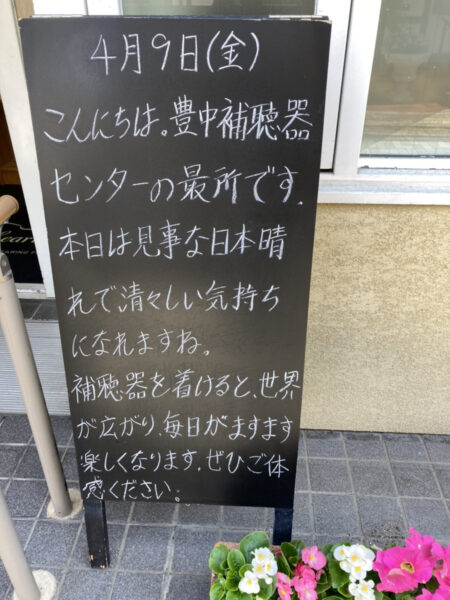 4月9日(金)
こんにちは。豊中補聴器
センターの最所です.
本日は見事な日本晴
れで清々しい気持ち
になれますね。
補聴器を着けると、世界
が広がり、毎日がますます
楽しくなります。ぜひご体
感ください。